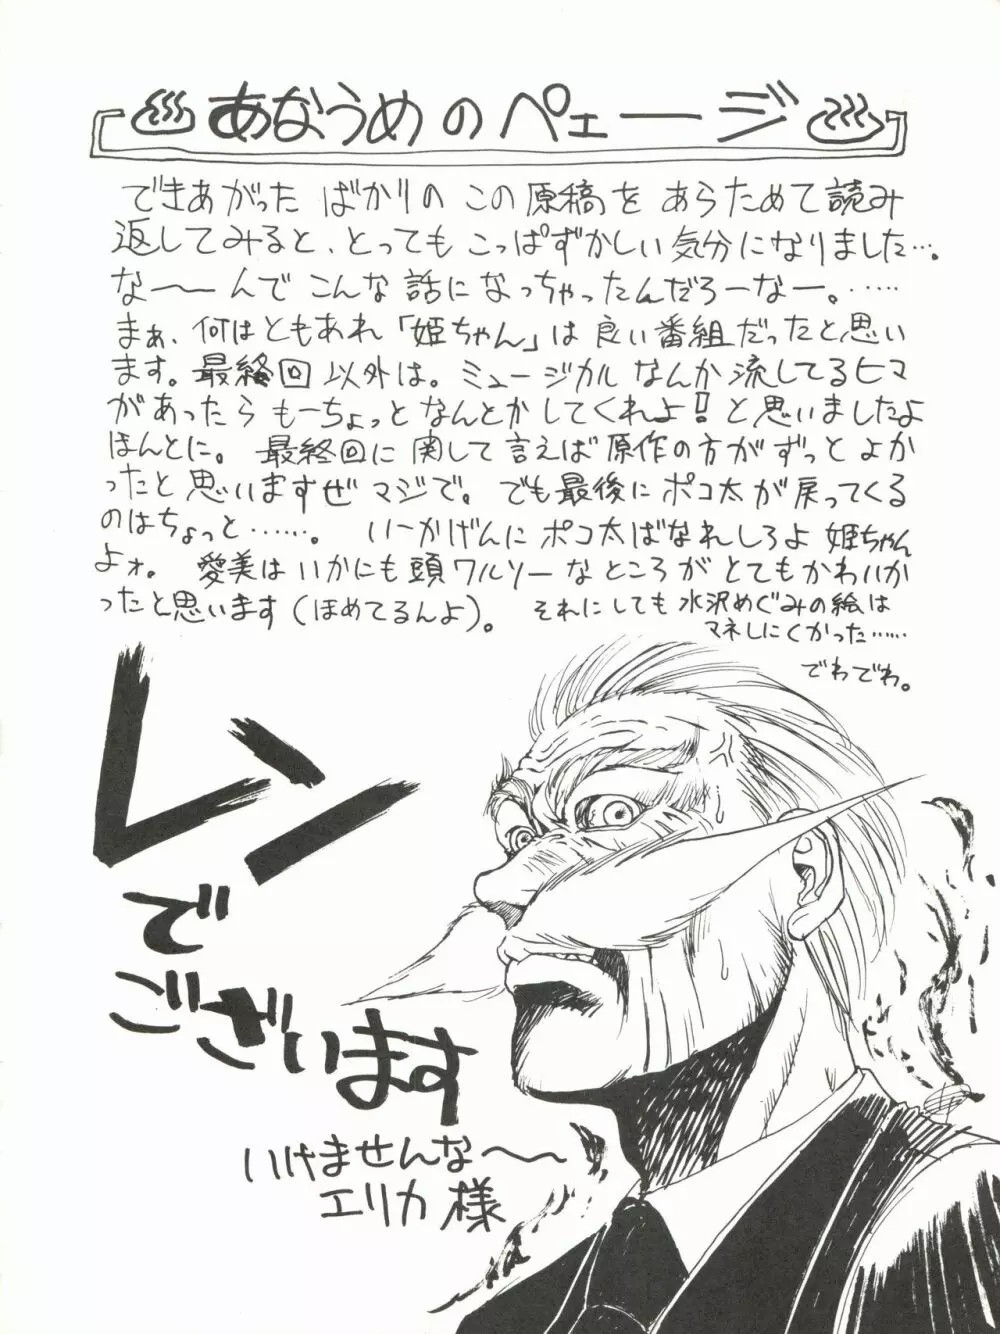 あなうめのペェージ
できあがった ばかりの この原稿を あらためて読み
返してみると、とっても こっぱずかしい気分になりました…。
な〜〜んで こんな 話に なっちゃったんだろーなー。……
まぁ、何はともあれ「姫ちゃん」は 良い番組だったと思い
ます。最終回 以外は。ミュージカル なんか 流してるヒマ
があったら もーちょっと なんとかしてくれよ!と思いましたよ
ほんとに。 最終回に 関して 言えば 原作の方が ずっと よか
ったと 思いますぜ マジで。でも最後に ポコ太が戻ってくる
のはちょっと……。 いーかげんに ポコ太ばなれしろよ 姫ちゃん
よォ。 愛美は いかにも頭ワルソーなところが とてもかわいか
ったと思います(ほめてるんよ)。 それにしても 水沢めぐみの絵は
マネしにくかった……
でわでわ。
レン
で
ございます
いけませんな〜〜
エリカ 様